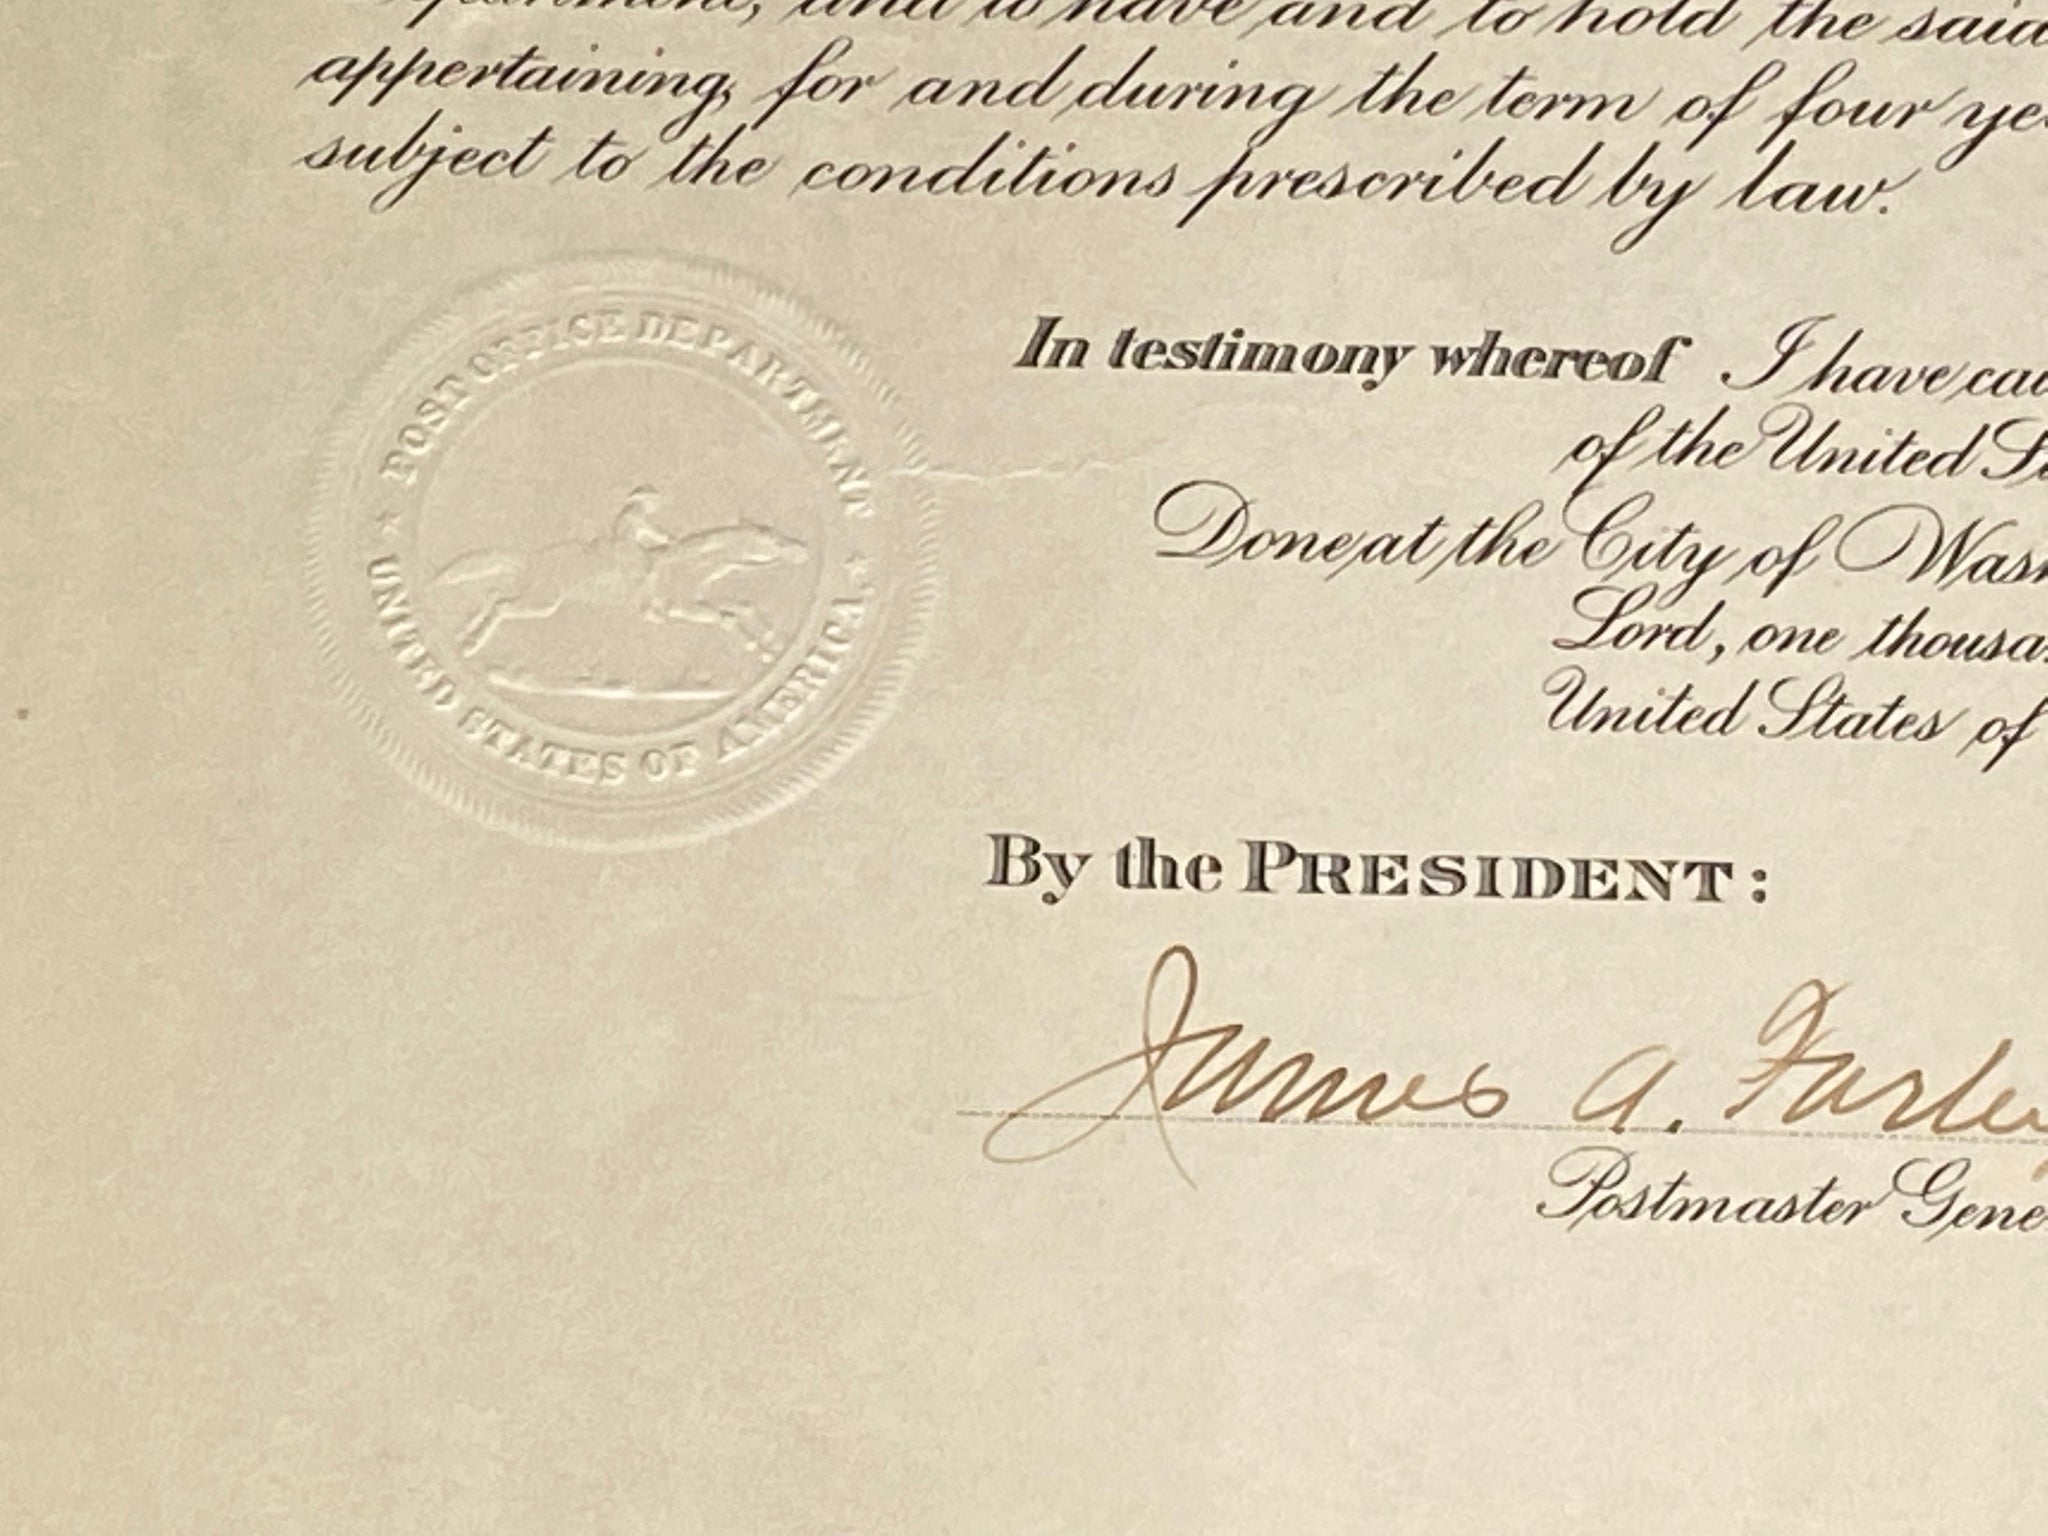 and to have and to hold the said
appertaining, for and during the term of four
subject to the conditions prescribed by law.
POST OFFICE DEPARTMENT
★ ★
UNITED STATES OF AMERICA.
In testimony whereof I have
of the United
Done at the City of
Lord, one
United States of
By the PRESIDENT:
James A. Farley
Postmaster